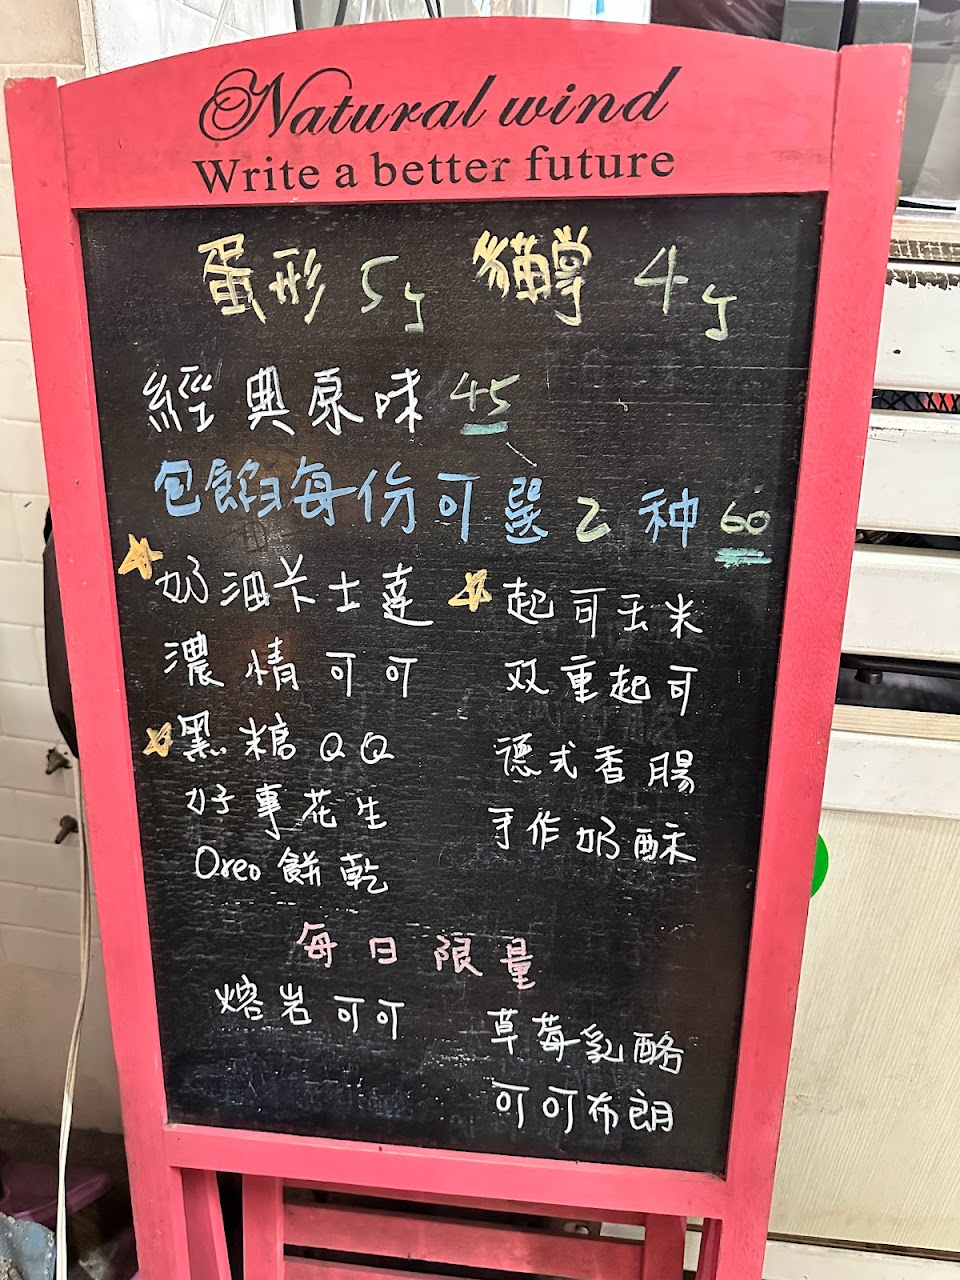 Natural wind
Write a better future
蛋形 5y 貓掌 4y
經典原味 45
包餡每份可選 2 种 60
奶油卡士達
濃情可可
黑糖QQ
好事花生
Oreo餅乾
起司玉米
双重起司
德式香腸
手作奶酥
每日限量
熔岩可可
草莓乳酪
可可布朗